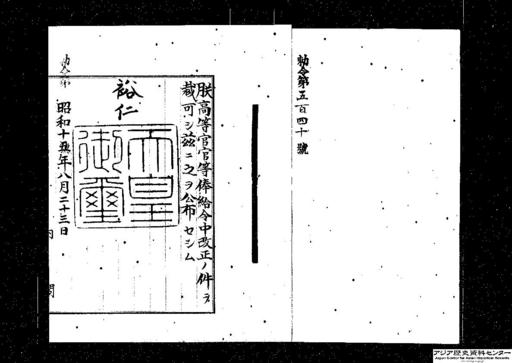 勅令第五百四十號
朕高等官官等俸給令中改正ノ件ヲ
裁可シ茲ニ之ヲ公布セシム
裕仁
天皇
御璽
昭和十五年八月二十三日
内閣
勅令第
アジア歴史資料センター
Japan Center for Asian Historical Records